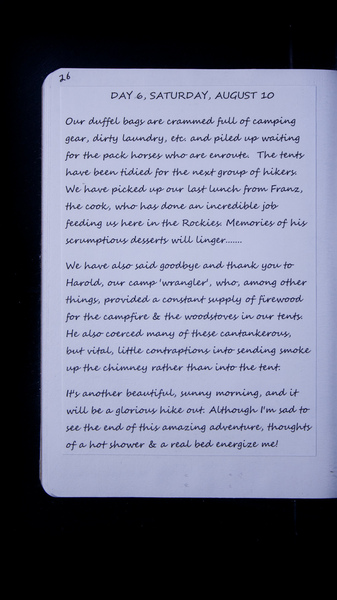 26
DAY 6, SATURDAY, AUGUST 10
Our duffel bags are crammed full of camping
gear, dirty laundry, etc. and piled up waiting
for the pack horses who are enroute. The tents
have been tidied for the next group of hikers.
We have picked up our last lunch from Franz,
the cook, who has done an incredible job
feeding us here in the Rockies. Memories of his
scrumptious desserts will linger.......
We have also said goodbye and thank you to
Harold, our camp 'wrangler', who, among other
things, provided a constant supply of firewood
for the campfire & the woodstoves in our tents.
He also coerced many of these cantankerous,
but vital, little contraptions into sending smoke
up the chimney rather than into the tent.
It's another beautiful, sunny morning, and it
will be a glorious hike out. Although I'm sad to
see the end of this amazing adventure, thoughts
of a hot shower & a real bed energize me!